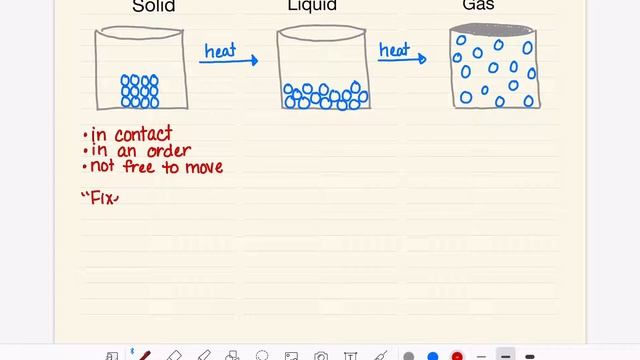 Solid Liquid Gas
heat heat
• in contact
• in an order
• not free to move
"Fix